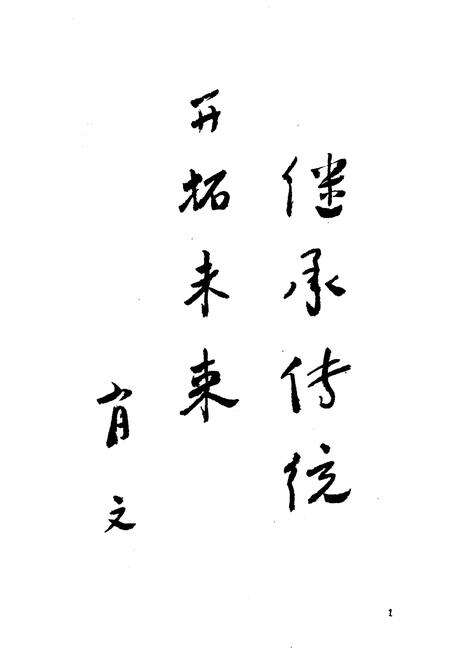 继承传统
开拓未来
肖文
1